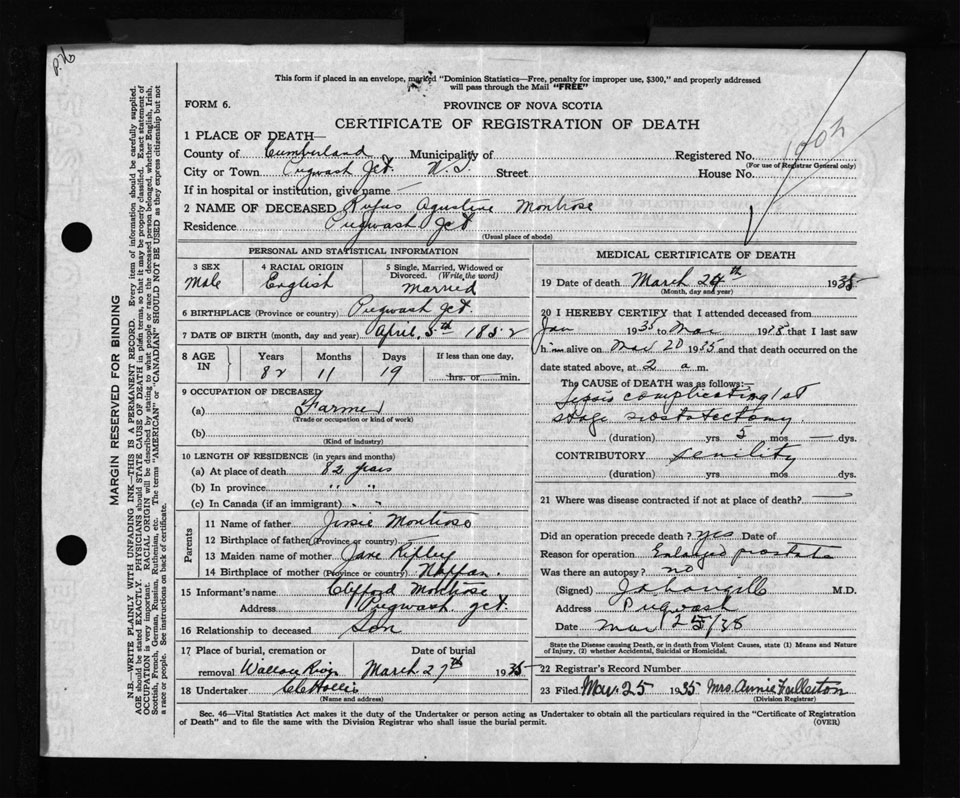 This form if placed in an envelope, marked "Dominion Statistics—Free, penalty for improper use, $300," and properly addressed
will pass through the Mail "FREE"
FORM 6.
PROVINCE OF NOVA SCOTIA
CERTIFICATE OF REGISTRATION OF DEATH
1 PLACE OF DEATH—
County of Cumberland Municipality of Registered No. 1002
(For use of Registrar General only)
City or Town Pugwash Jct. N.S. Street House No.
If in hospital or institution, give name —
2 NAME OF DECEASED Rufus Agustine Montrose
Residence Pugwash Jct
(Usual place of abode)
PERSONAL AND STATISTICAL INFORMATION
3 SEX 4 RACIAL ORIGIN 5 Single, Married, Widowed or
Divorced (Write the word)
Male English Married
6 BIRTHPLACE (Province or country) Pugwash Jct.
7 DATE OF BIRTH (month, day and year) April 5th 1852
8 AGE IN Years Months Days If less than one day,
82 11 19 hrs. or min.
9 OCCUPATION OF DECEASED
(a) Farmer
(Trade or occupation or kind of work)
(b)
(Kind of industry)
10 LENGTH OF RESIDENCE (in years and months)
(a) At place of death 82 years
(b) In province " "
(c) In Canada (if an immigrant) " "
Parents
11 Name of father Montrose
12 Birthplace of father (Province or country) —
13 Maiden name of mother Jane Ripley
14 Birthplace of mother (Province or country) Nappan.
15 Informant's name Clifford Montrose
Address Pugwash Jct.
16 Relationship to deceased Son
17 Place of burial, cremation or Date of burial
removal Wallace March 27th 1935
18 Undertaker Hollis
(Name and address)
MEDICAL CERTIFICATE OF DEATH
19 Date of death March 24th 1935
(Month, day and year)
20 I HEREBY CERTIFY that I attended deceased from
Jan 1935 to Mar 1935 that I last saw
him alive on Mar 20 1935 and that death occurred on the
date stated above, at 2 a m.
The CAUSE OF DEATH was as follows:—
Sepsis complicating 1st
stage prostatectomy.
(duration) yrs 5 mos — dys.
CONTRIBUTORY senility
(duration) yrs. mos dys.
21 Where was disease contracted if not at place of death? —
Did an operation precede death? yes Date of
Reason for operation Enlarged prostate
Was there an autopsy? no
(Signed) M.D.
Address Pugwash
Date Mar 25/35
State the Disease causing Death, or in death from Violent Causes, state (1) Means and Nature
of Injury, (2) whether Accidental, Suicidal or Homicidal.
22 Registrar's Record Number
23 Filed Mar 25 1935 Mrs. Annie Fullerton
(Division Registrar)
Sec. 46—Vital Statistics Act makes it the duty of the Undertaker or person acting as Undertaker to obtain all the particulars required in the "Certificate of Registration
of Death" and to file the same with the Division Registrar who shall issue the burial permit. (OVER)
MARGIN RESERVED FOR BINDING
N.B.—WRITE PLAINLY WITH UNFADING INK—THIS IS A PERMANENT RECORD. Every item of information should be carefully supplied.
AGE should be stated EXACTLY. PHYSICIANS should STATE CAUSE OF DEATH in plain terms, so that it may be properly classified. Exact statement of
OCCUPATION is very important. RACIAL ORIGIN will be described by stating to what people or race the deceased person belonged, whether English, Irish,
Scottish, French, German, Russian, Ruthenian, etc. The terms "AMERICAN" or "CANADIAN" SHOULD NOT BE USED as they express citizenship but not
a race or people. See instructions on back of certificate.